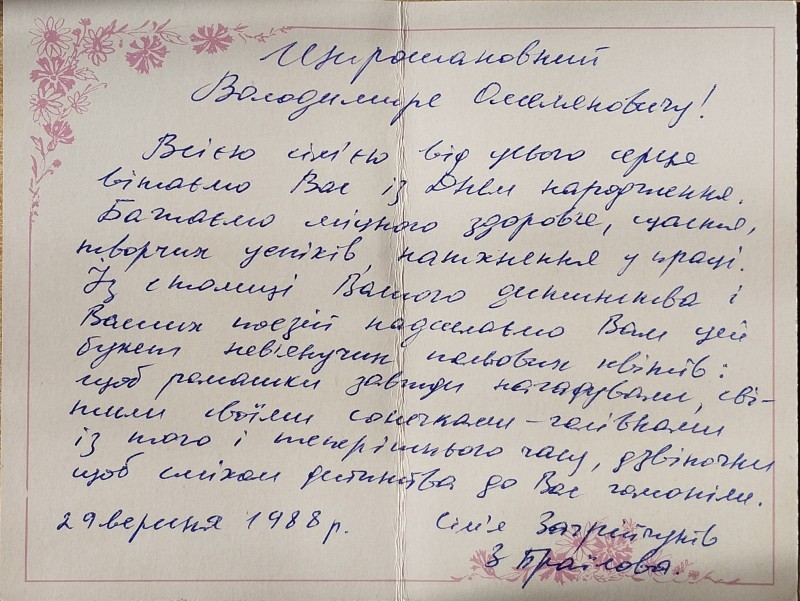 Щирошановний
Володимире Омеляновичу!
Всією сім'єю від усього серця
вітаємо Вас із Днем народження.
Бажаємо міцного здоров'я, щастя,
творчих успіхів, натхнення у праці.
Із столиці Вашого дитинства і
Ваших поезій надсилаємо Вам цей
букет нев'янучих польових квітів:
щоб ромашки завжди нагадували, сві-
тили своїми сонечками-голівками
із того і теперішнього часу, дзвіночки
щоб сміхом дитинства до Вас гомоніли.
29 вересня 1988 р. сім'я
З Браїлова.